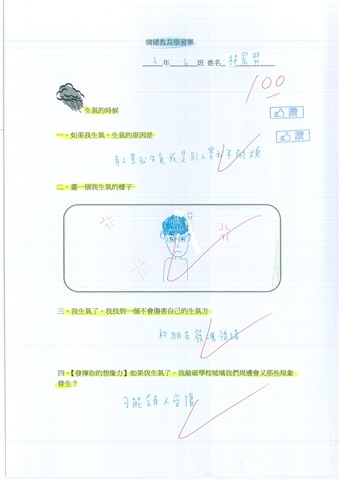 情緒教育學習單
6年6班 姓名
100
生氣的時候
讚
一、如果我生氣,生氣的原因是
讚
有人害我生氣或是別人害我不耐煩
二、畫一個我生氣的樣子
三、我生氣了,我找到一個不會傷害自己的生氣方
和朋友發洩情緒
四、【發揮你的想像力】如果我生氣了,我敲破學校玻璃我們周遭會又那些現象
發生?
可能會有人受傷